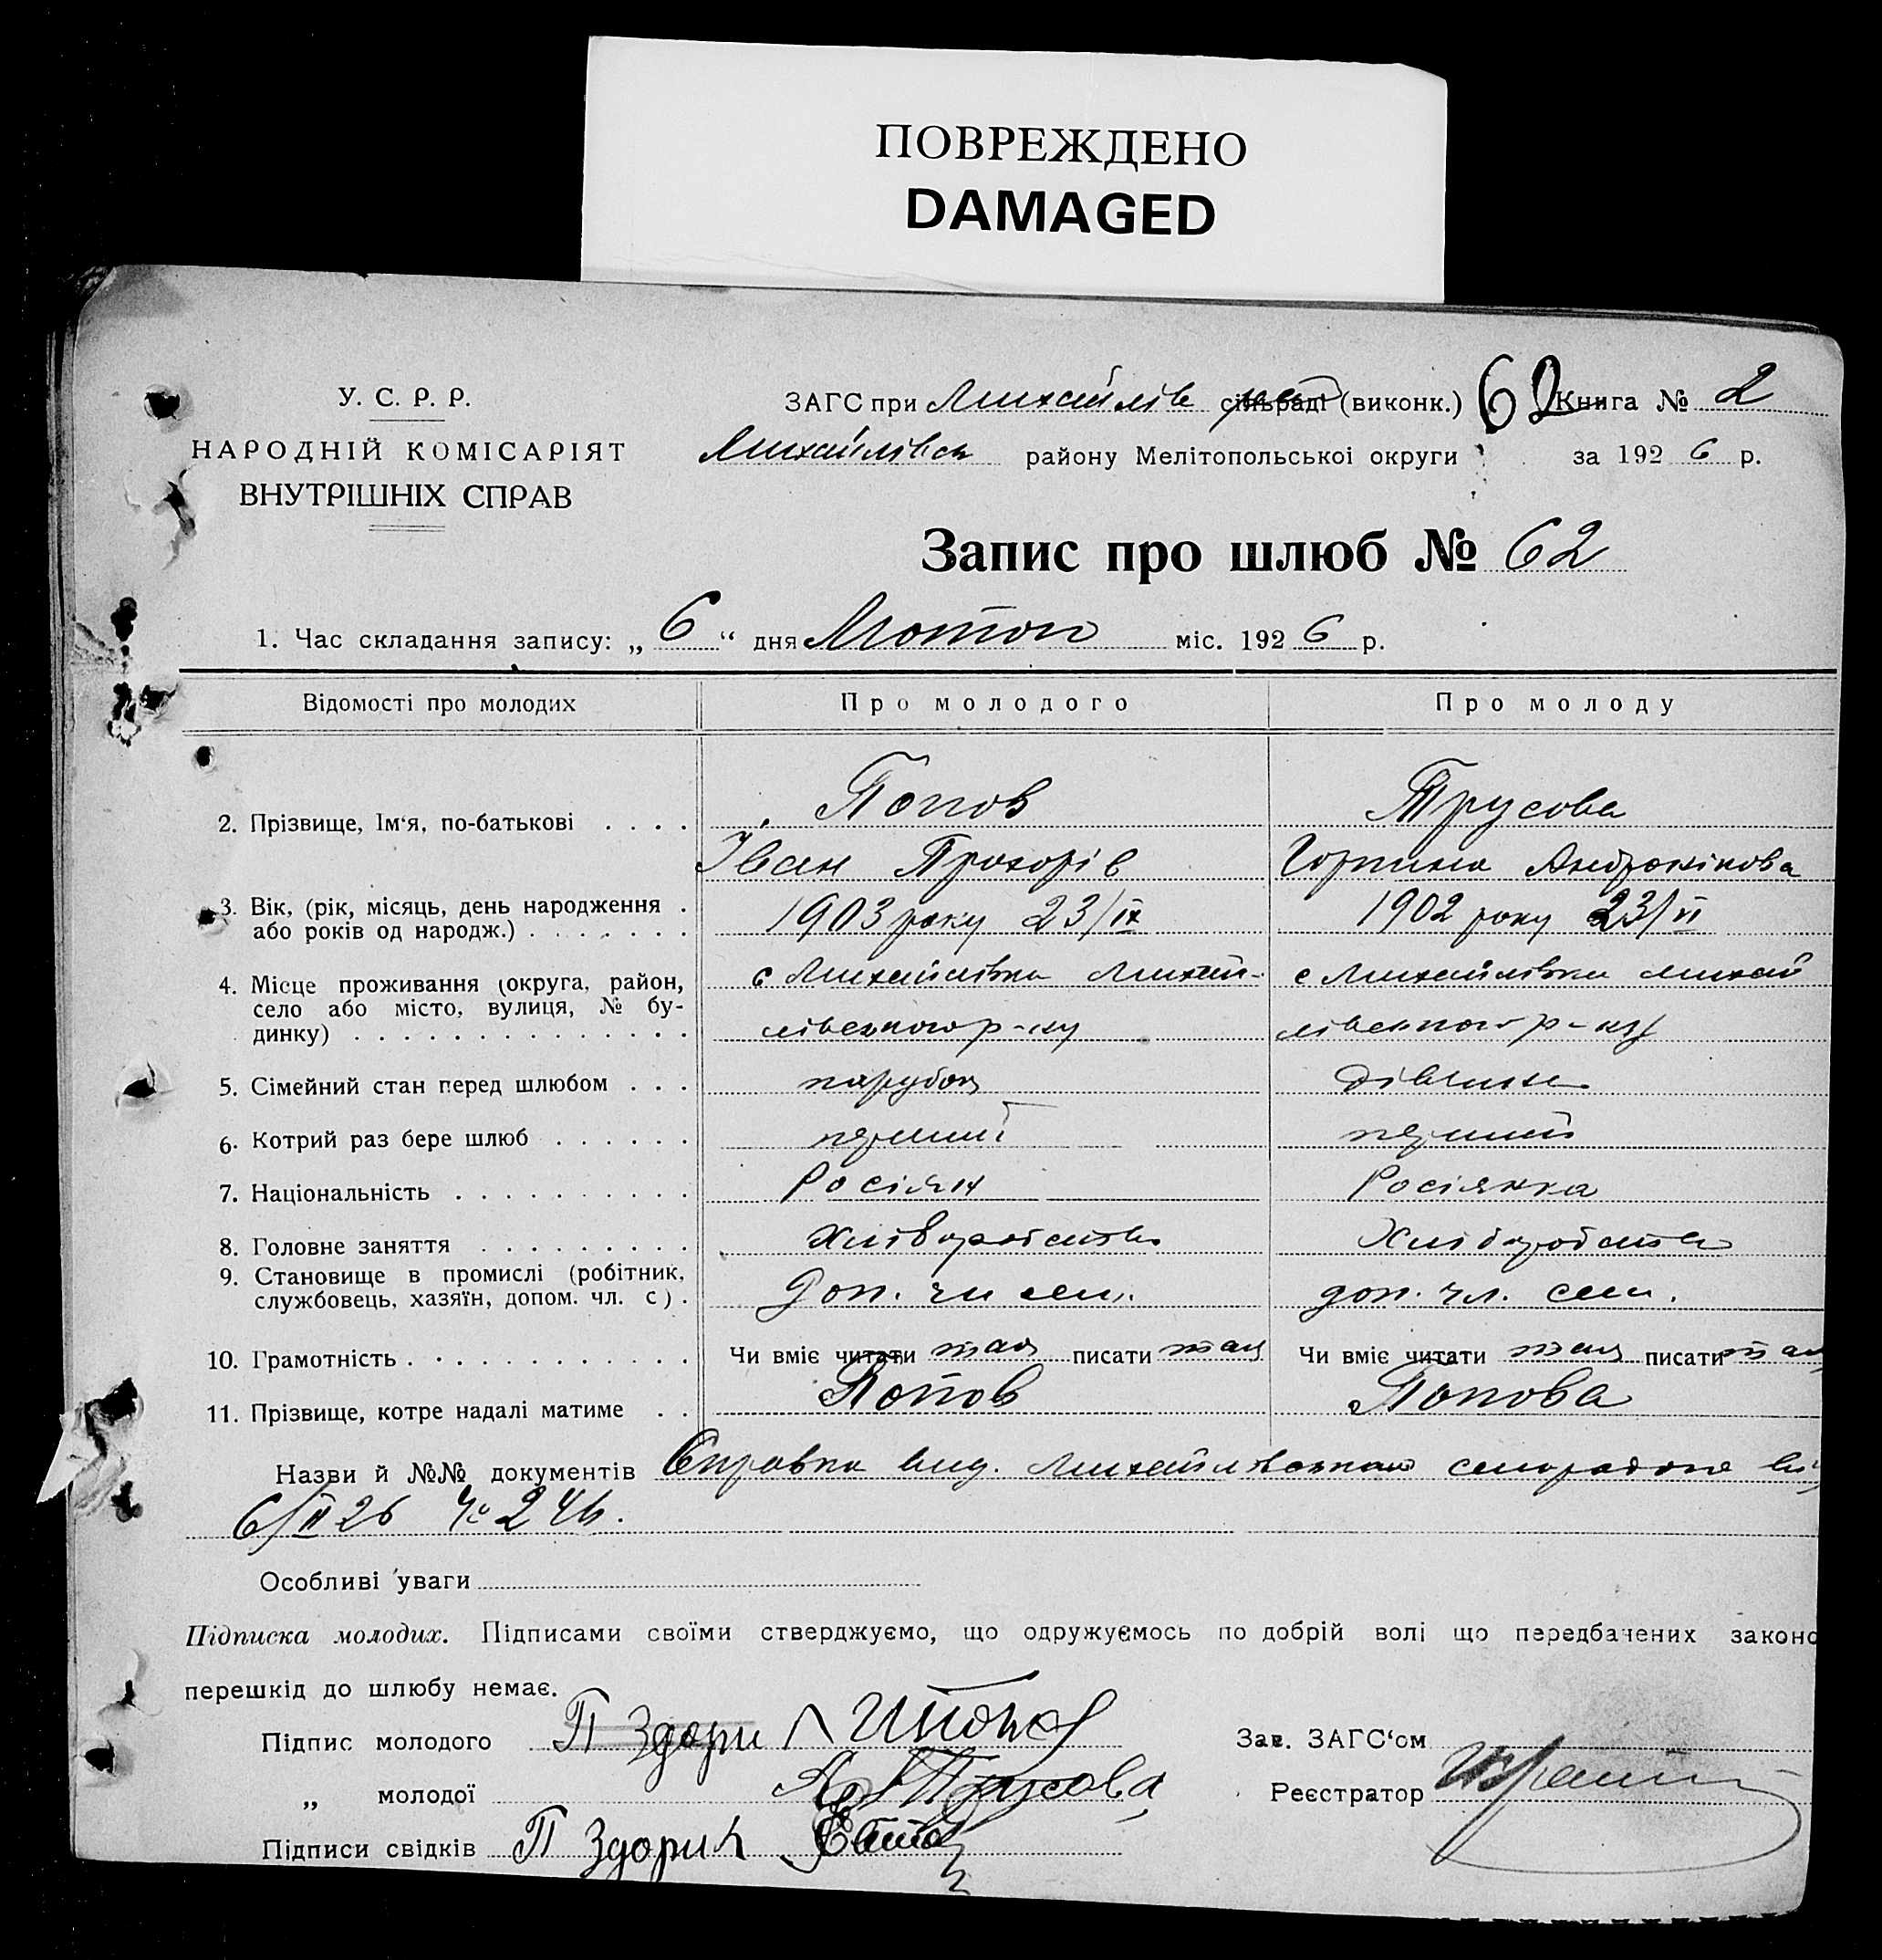 ПОВРЕЖДЕНО
DAMAGED
У. С. Р. Р.
НАРОДНІЙ КОМІСАРІЯТ
ВНУТРІШНІХ СПРАВ
ЗАГС при Михайлів сільраді (виконк.) 62 Книга № 2
Михайлівськ району Мелітопольськоі округи за 1926 р.
Запис про шлюб № 62
1. Час складання запису: „ 6 “ дня Лютого міс. 1926 р.
Відомості про молодих Про молодого Про молоду
Попов Трусова
2. Прізвище, Ім‘я, по-батькові . . . .
Іван Прохорів Горпина Андронікова
3. Вік, (рік, місяць, день народження . 1903 року 23/IX 1902 року 23/VI
або років од народж.) . . . . . . .
4. Місце проживання (округа, район, с Михайлівка Михай- с Михайлівка михай
село або місто, вулиця, № бу-
динку) . . . . . . . . . . . . . . лівського р-ну лівського р-ну
5. Сімейний стан перед шлюбом . . . парубок дівчина
6. Котрий раз бере шлюб . . . . . . перший перший
7. Національність . . . . . . . . . . Росіян Росіянка
8. Головне заняття . . . . . . . . . Хліборобство Хліборобство
9. Становище в промислі (робітник,
службовець, хазяїн, допом. чл. с) . Доп. чл сем. доп. чл. сем.
10. Грамотність . . . . . . . . . . . . Чи вміє читати так писати так Чи вміє читати так писати так
11. Прізвище, котре надалі матиме . . Попов Попова
Назви й №№ документів Справка вид. Михайлівською сільрадою від
6/II 26 № 246.
Особливі уваги
Підписка молодих. Підписами своїми стверджуємо, що одружуємось по добрій волі що передбачених законо
перешкід до шлюбу немає.
Підпис молодого П Здори И Попов Зав. ЗАГС‘ом
„ молодої Трусова Реєстратор
Підписи свідків П Здорик